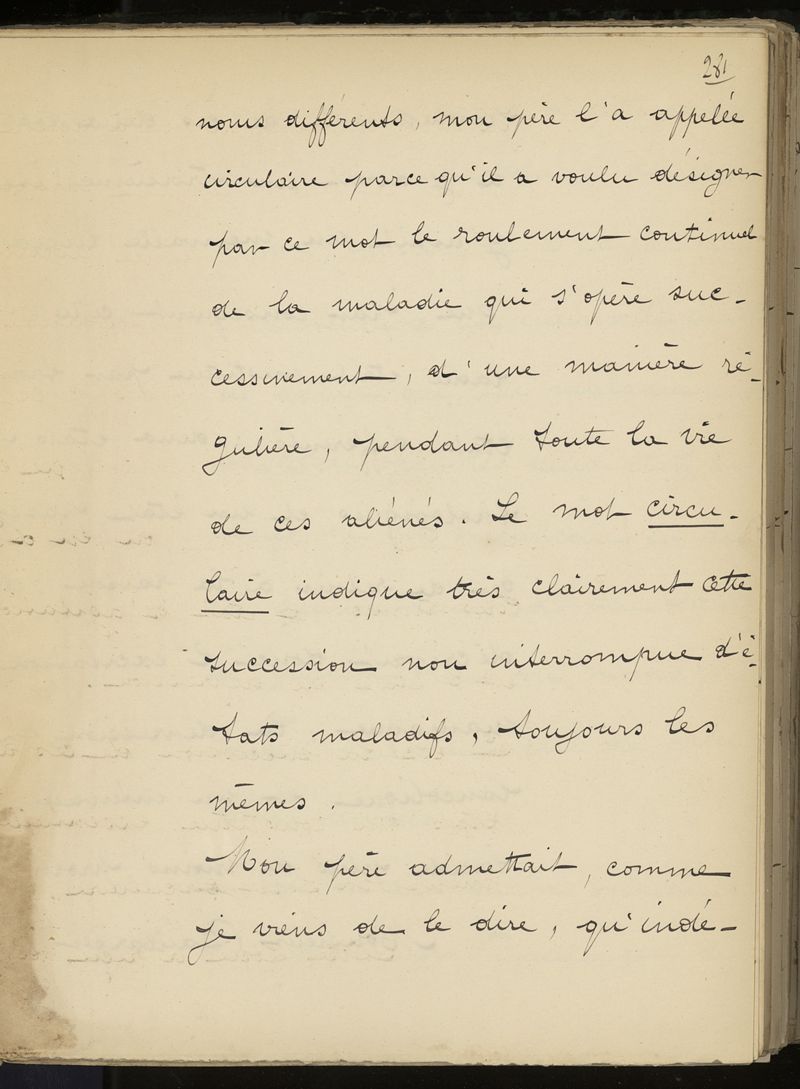 281
noms différents, mon père l'a appelée
circulaire parce qu'il a voulu désigner
par ce mot le roulement continuel
de la maladie qui s'opère suc-
cessivement, d'une manière ré-
gulière, pendant toute la vie
de ces aliénés. Le mot circu-
laire indique très clairement cette
succession non interrompue d'é-
tats maladifs, toujours les
mêmes.
Mon père admettait, comme
je viens de le dire, qu'indé-